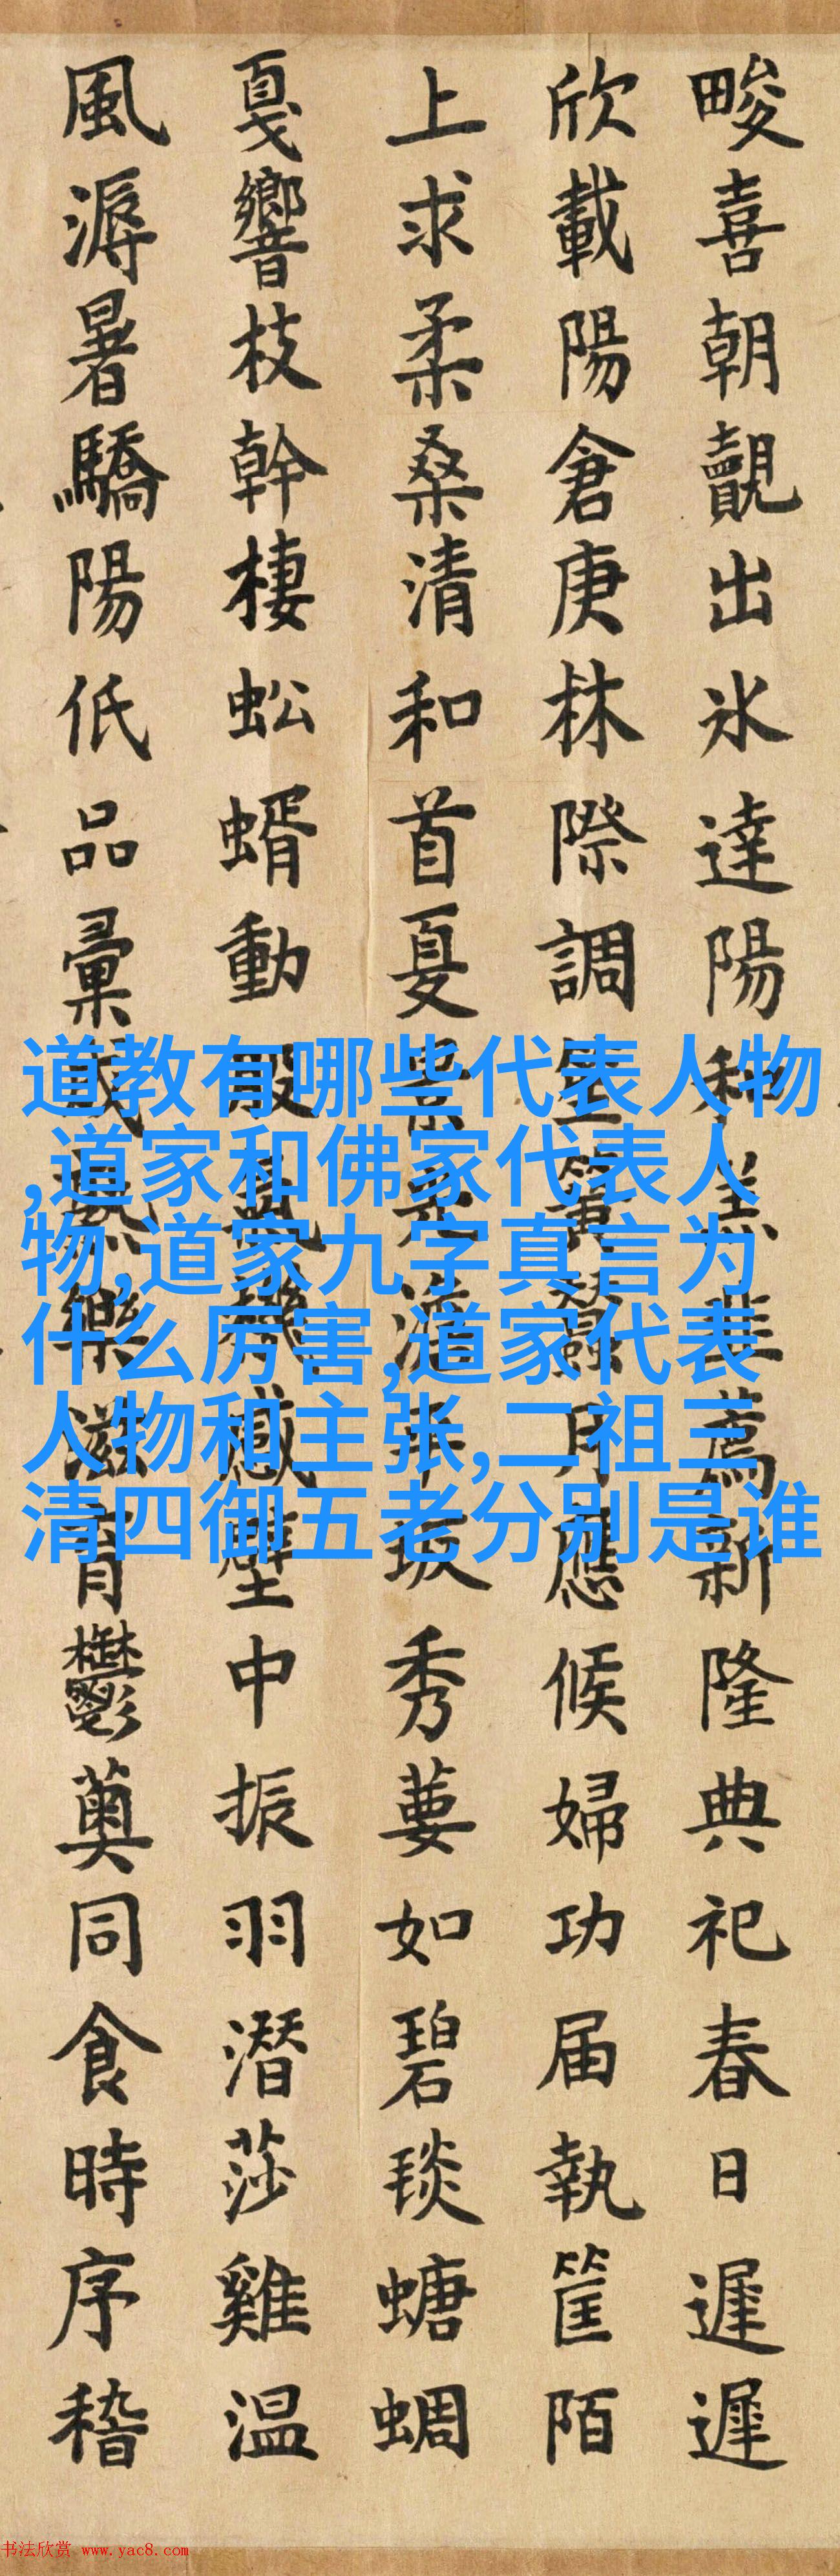 畯喜朝覿出氷達陽和羔韭薦新隆典祀春日遲遲
欣載陽倉庚林際調應候婦功届執筐陌
上求柔桑清和首夏秀葽如碧琰螗蜩
戛響枝幹棲蚣蝑動股感壁中振羽潛莎雞温
風溽暑驕陽低品彙滋育鬱薁同食時序稽
道教有哪些代表人物
,道家和佛家代表人
物,道家九字真言为
什么厉害,道家代表
人物和主张,二祖三
清四御五老分别是谁
书法欣赏 www.yac8.com